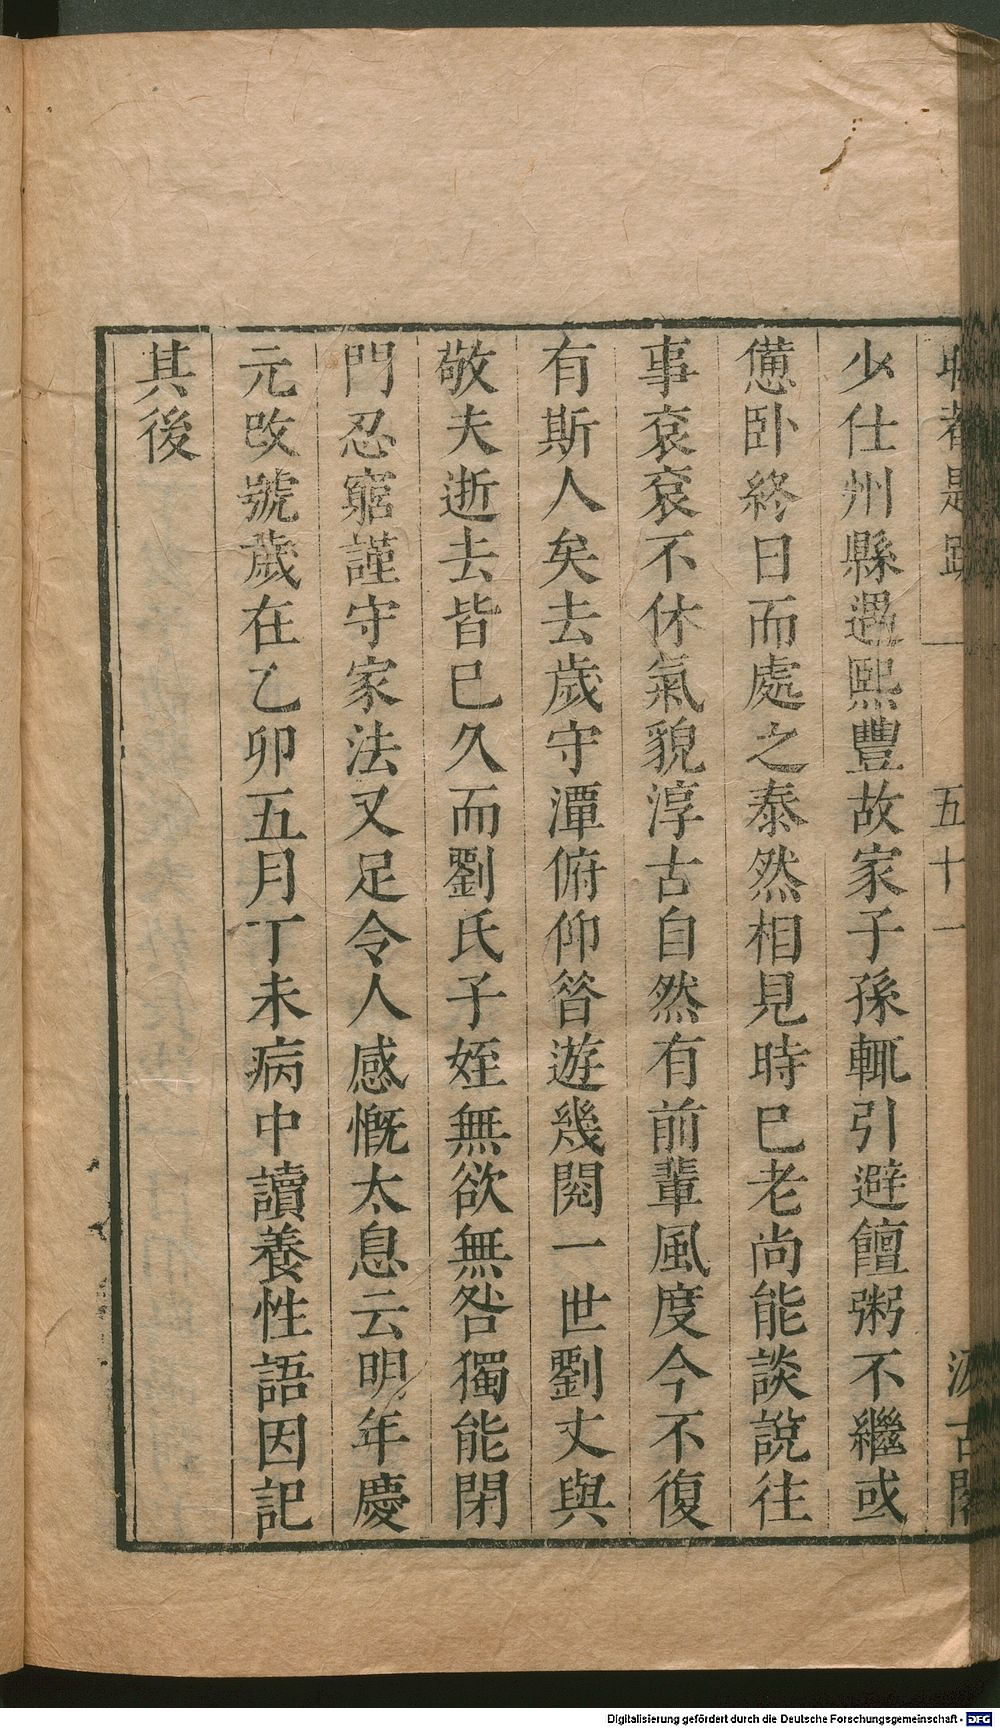 少仕州縣遇熙豐故家子孫輒引避饘粥不繼或
憊卧終日而處之泰然相見時巳老尚能談說往
事袞袞不休氣貌淳古自然有前輩風度今不復
有斯人矣去歲守潭俯仰昝遊幾閱一世劉丈與
敬夫逝去皆巳久而劉氏子姪無欲無咎獨能閉
門忍窮謹守家法又足令人感慨太息云明年慶
元改號歲在乙卯五月丁未病中讀養性語因記
其後
五十一
汲古閣
Digitalisierung gefördert durch die Deutsche Forschungsgemeinschaft - DFG